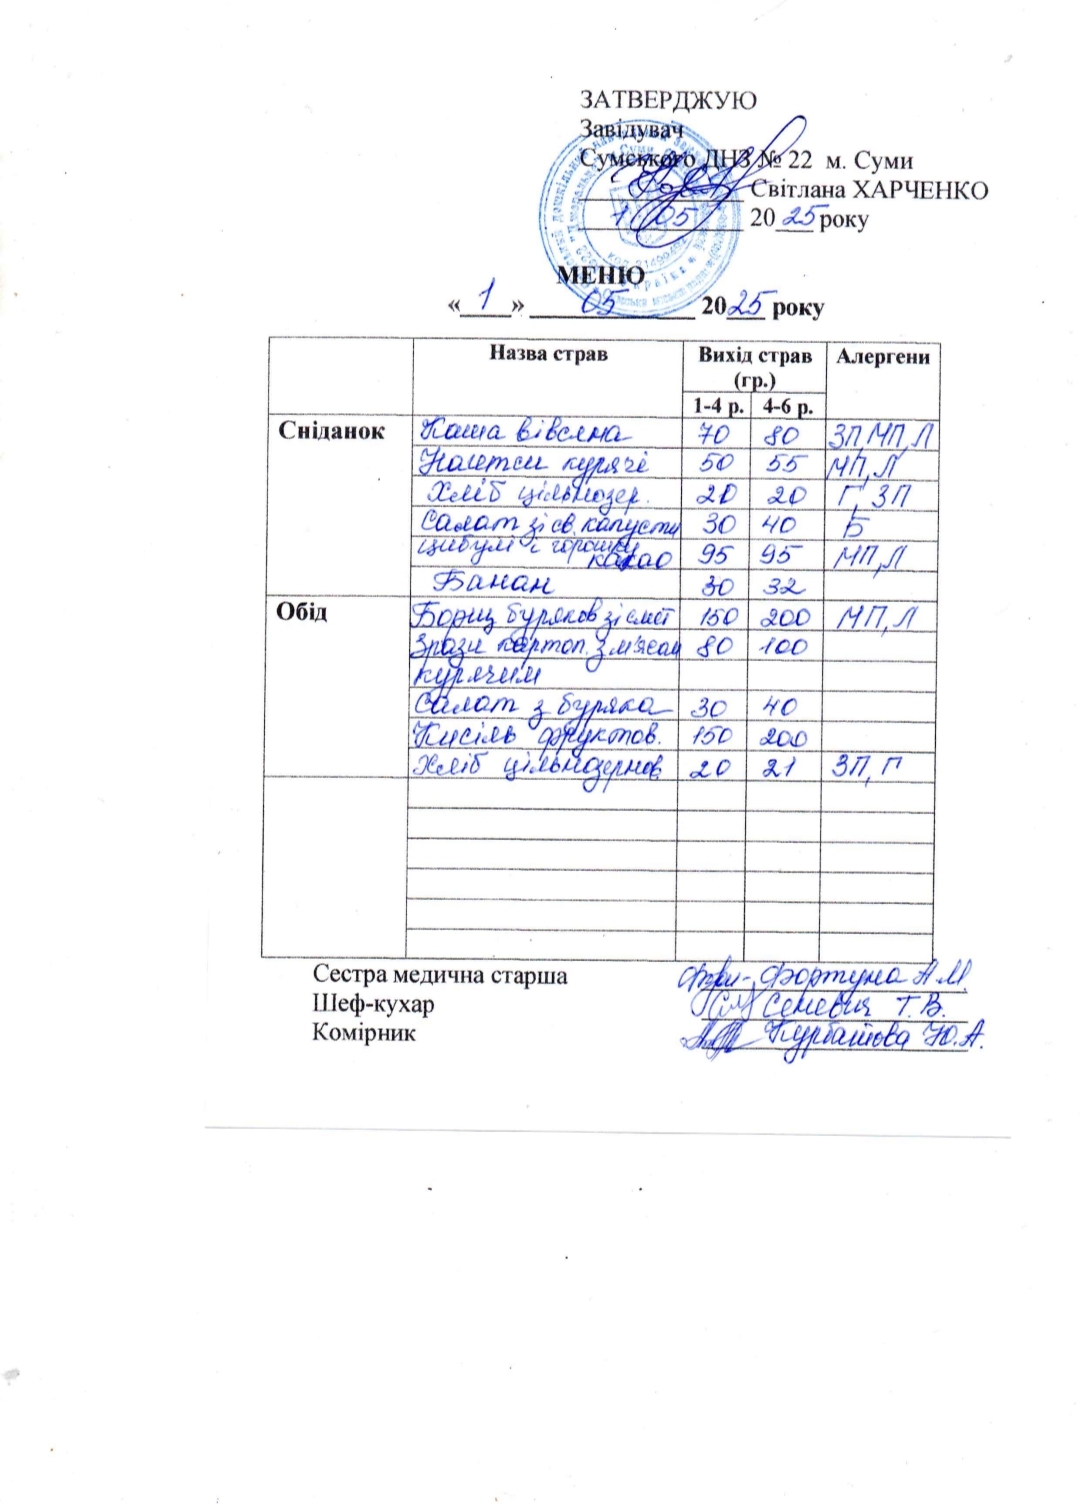 ЗАТВЕРДЖУЮ
Завідувач
Сумського ДНЗ № 22 м. Суми
Світлана ХАРЧЕНКО
1 05 2025 року
МЕНЮ
«1» 05 2025 року
Назва страв Вихід страв (гр.) Алергени
1-4 р. 4-6 р.
Сніданок Каша вівсяна 70 80 ЗП, МП, Л
Нагетси курячі 50 55 МП, Л
Хліб цільнозер. 20 20 Г, ЗП
Салат зі св. капусти 30 40 Б
цибулі і горошку
какао 95 95 МП, Л
Банан 30 32
Обід Борщ буряков зі смет 150 200 МП, Л
Зрази картоп. з м'ясом 80 100
курячим
Салат з буряка 30 40
Кисіль фруктов. 150 200
Хліб цільнозернов 20 21 ЗП, Г
Сестра медична старша Фортуна А.М.
Шеф-кухар Семевич Т.В.
Комірник Курбатова Ю.А.